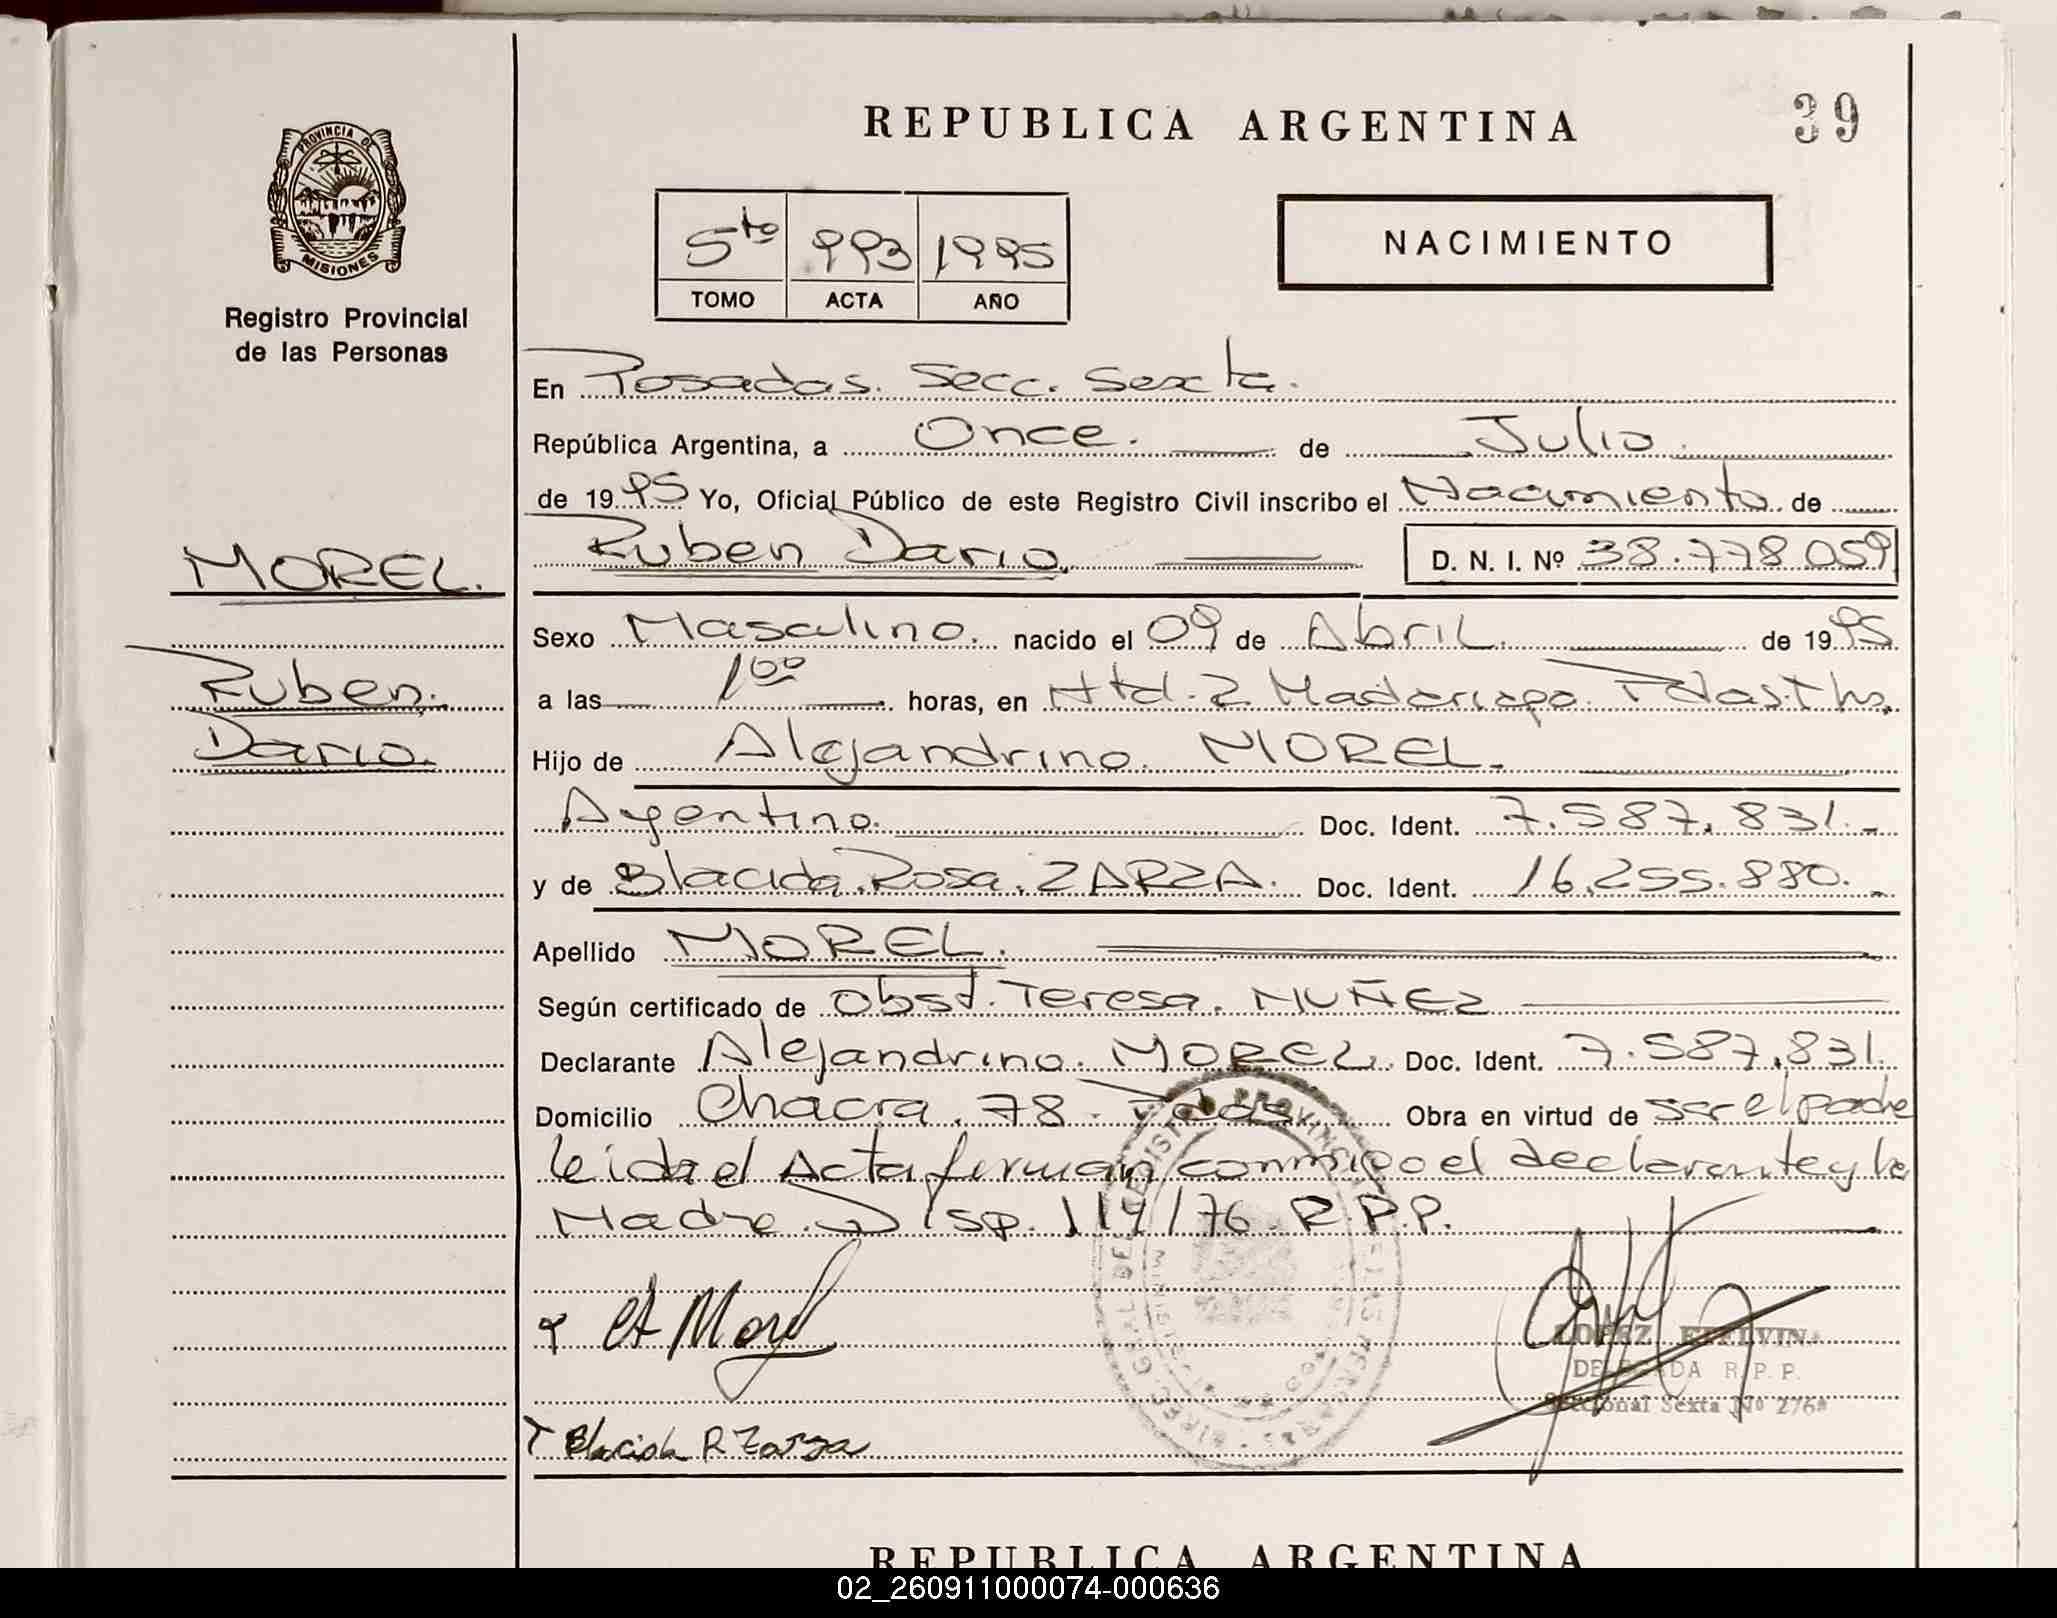 REPUBLICA ARGENTINA
39
PROVINCIA DE
MISIONES
Registro Provincial
de las Personas
5to 993 1995
TOMO ACTA AÑO
NACIMIENTO
En Posadas. Secc. Sexta.
República Argentina, a Once. de Julio.
de 1995 Yo, Oficial Público de este Registro Civil inscribo el Nacimiento de
Ruben Dario. D. N. I. Nº 38.778.059
MOREL.
Ruben.
Dario.
Sexo Masculino. nacido el 09 de Abril. de 1995.
a las 1 00 horas, en Htal. 2 Madariaga. Pdas.
Hijo de Alejandrino. MOREL.
Argentino. Doc. Ident. 7.587.831.-
y de Blacida. Rosa. ZARZA. Doc. Ident. 16.255.880.-
Apellido MOREL.
Según certificado de Obst. Teresa. MUÑEZ
Declarante Alejandrino. MOREL. Doc. Ident. 7.587.831.
Domicilio Chacra. 78. Pdas. Obra en virtud de ser el padre
leida el Acta firman conmigo el declarante y la
Madre. Disp. 119/76. R.P.P.
Blacida R Zarza
LOPEZ ETELVINA
DELEGADA R. P. P.
Seccional Sexta Nº 276
REPUBLICA ARGENTINA
02_260911000074-000636